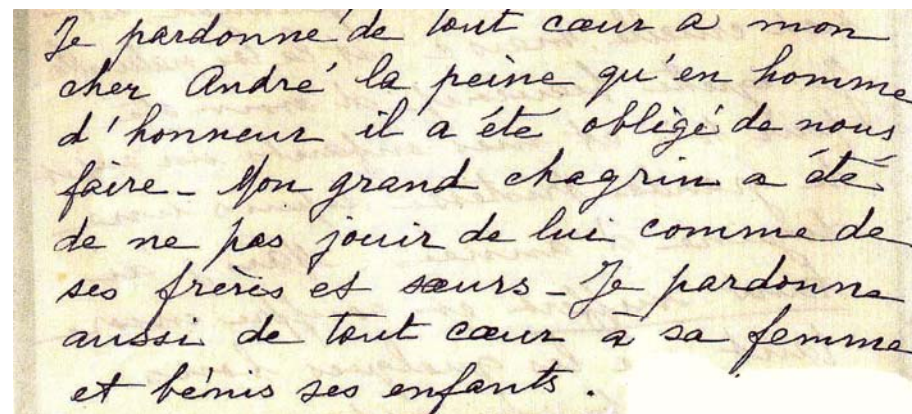 Je pardonne de tout cœur à mon
cher André la peine qu'en homme
d'honneur il a été obligé de nous
faire - Mon grand chagrin a été
de ne pas jouir de lui comme de
ses frères et sœurs - Je pardonne
aussi de tout cœur à sa femme
et bénis ses enfants.